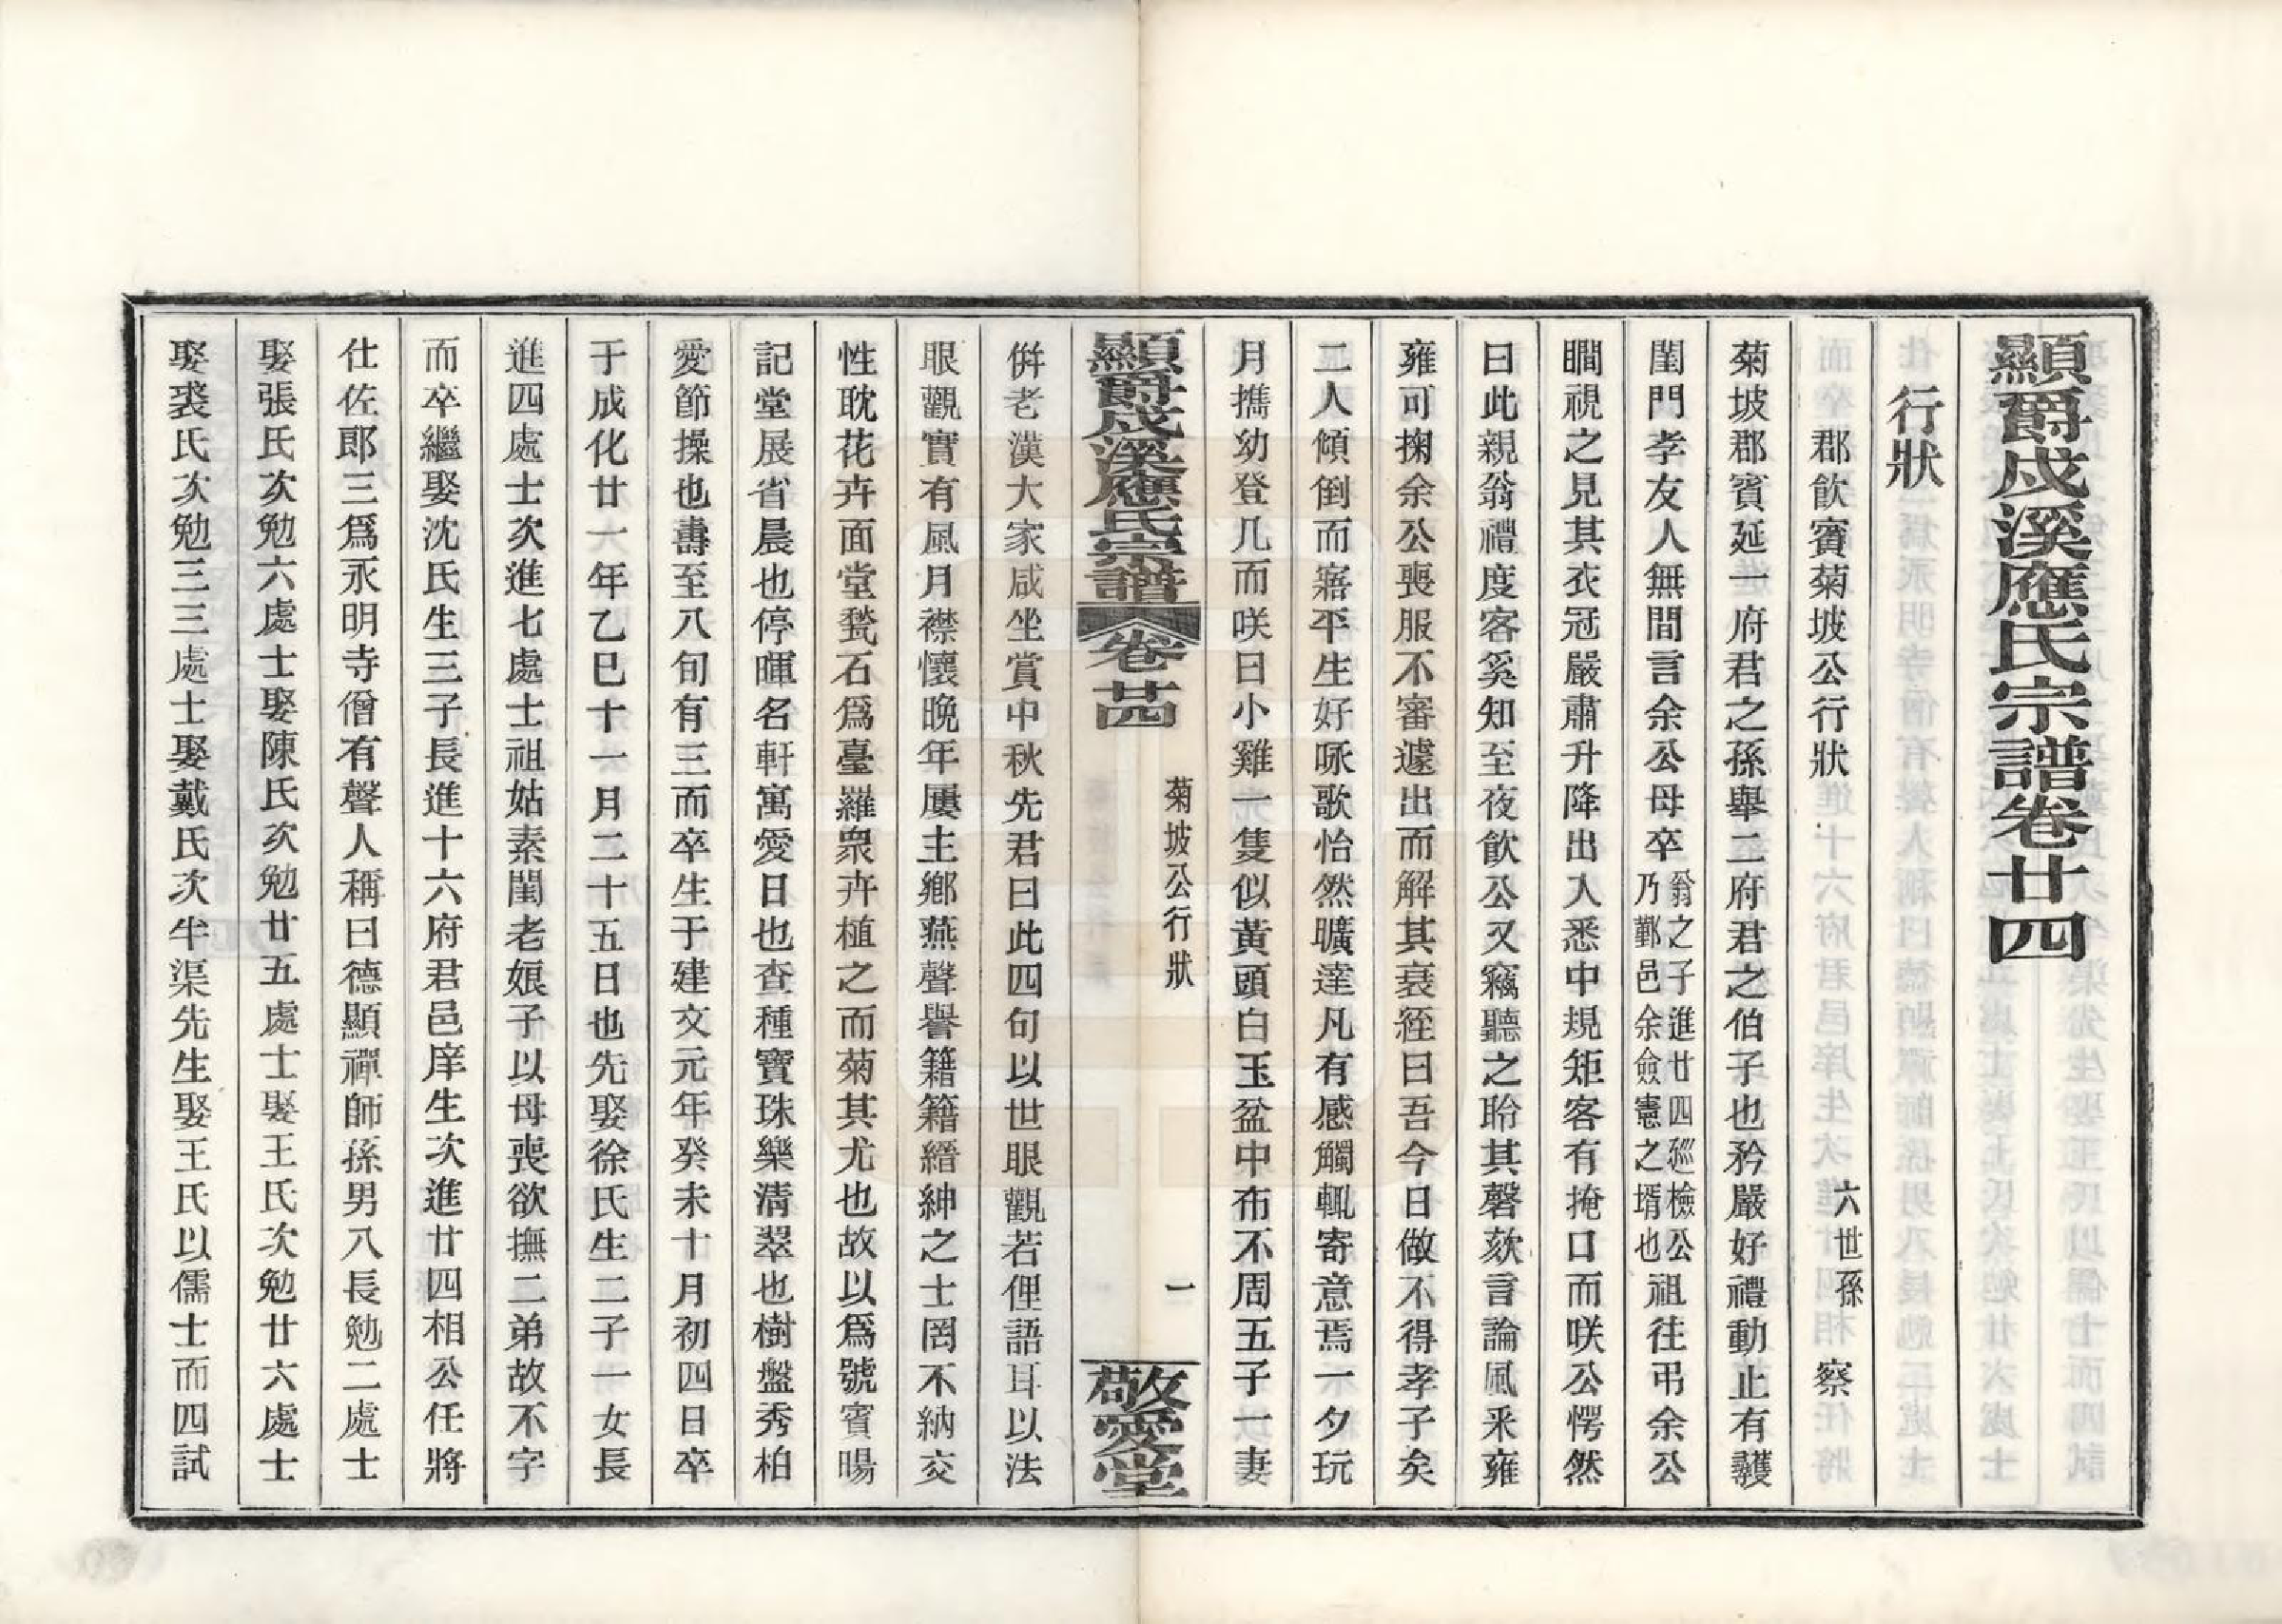 顯爵戍溪應氏宗譜卷廿四
行狀
郡飮賓菊坡公行狀
六世孫 察
菊坡郡賓延一府君之孫舉二府君之伯子也矜嚴好禮動止有䕶
閨門孝友人無間言余公母卒翁之子進廿四廵檢公乃鄞邑余僉憲之壻也祖往弔余公
瞷視之見其衣冠嚴肅升降出入悉中規矩客有掩口而咲公愕然
曰此親翁禮度客奚知至夜飮公又竊聽之聆其謦欬言論風釆雍
雍可掬余公喪服不審遽出而解其衰絰曰吾今日做不得孝子矣
二人傾倒而寤平生好咏歌怡然曠達凡有感觸輒寄意焉一夕玩
月擕幼登几而咲曰小雞一隻似黃頭白玉盆中布不周五子一妻
顯爵戍溪應氏宗譜 卷廿四 菊坡公行狀 一 敬愛堂
倂老漢大家咸坐賞中秋先君曰此四句以世眼觀若俚語耳以法
眼觀實有風月襟懷晚年屢主鄉燕聲譽籍籍縉紳之士罔不納交
性耽花卉面堂甃石爲臺羅衆卉植之而菊其尤也故以爲號賓暘
記堂展省晨也停暉名軒寓愛日也查種寶珠樂清翠也樹盤秀柏
愛節操也壽至八旬有三而卒生于建文元年癸未十月初四日卒
于成化廿一年乙巳十一月二十五日也先娶徐氏生二子一女長
進四處士次進七處士祖姑素閨老娘子以母喪欲撫二弟故不字
而卒繼娶沈氏生三子長進十六府君邑庠生次進廿四相公任將
仕佐郎三爲永明寺僧有聲人稱曰德顯禪師孫男八長勉二處士
娶張氏次勉六處士娶陳氏次勉廿五處士娶王氏次勉廿六處士
娶裘氏次勉三三處士娶戴氏次牛渠先生娶王氏以儒士而四試